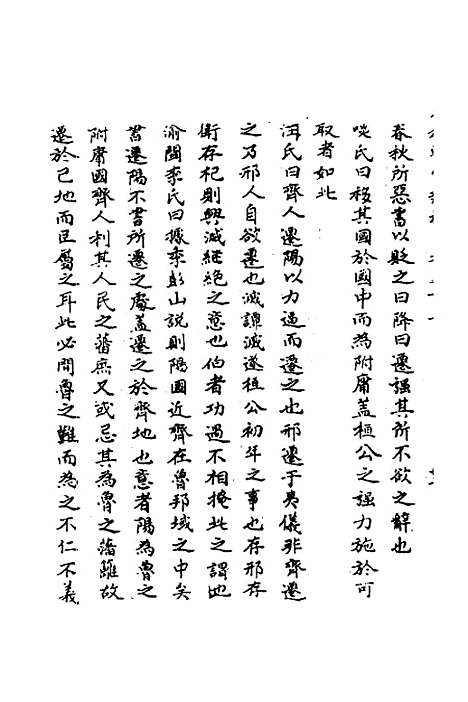 春秋所惡書以貶之曰降曰遷強其所不欲之辭也
啖氏曰移其國於國中而為附庸蓋桓公之强力施於可
取者如此
汪氏曰齊人遷陽以力逼而遷之也邢遷于夷儀非齊遷
之乃邢人自欲遷也滅譚滅遂桓公初年之事也存邢存
衛存杞則興滅繼絶之意也伯者功過不相掩此之謂也
渝關李氏曰據季彭山說則陽國近齊在魯邦域之中矣
書遷陽不書所遷之處蓋遷之於齊地也意者陽為魯之
附庸國齊人利其人民之蕃庶又或忌其為魯之藩籬故
遷於己地而臣屬之耳此必間魯之難而為之不仁不義